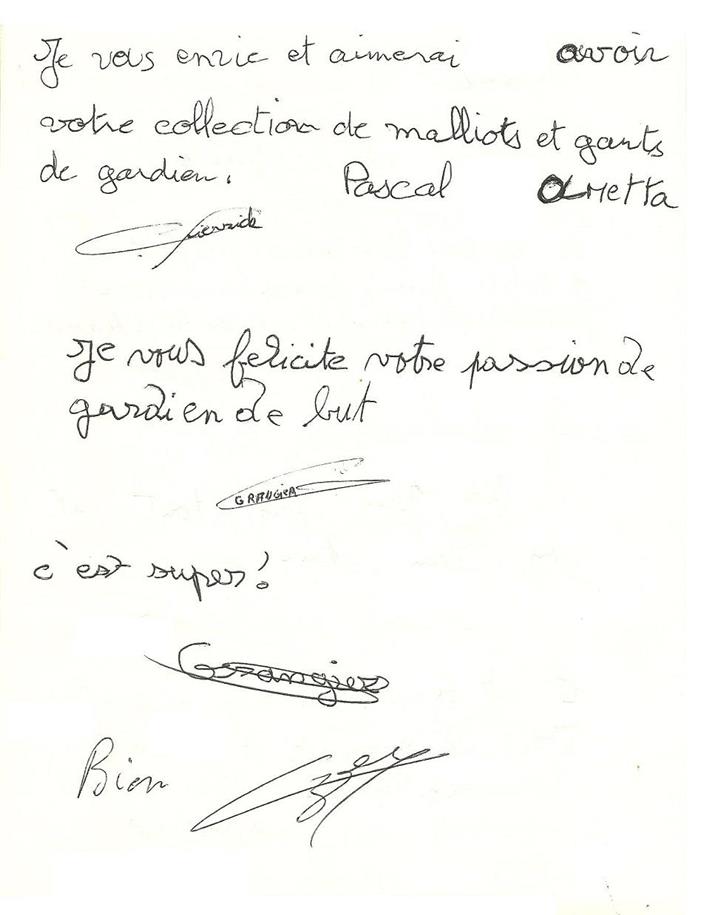 Je vous envie et aimerai avoir
votre collection de malliots et gants
de gardien. Pascal OLMETTA
Je vous felicite votre passion de
gardien de but
GRANGIER
c'est super!
Grangier
Bien